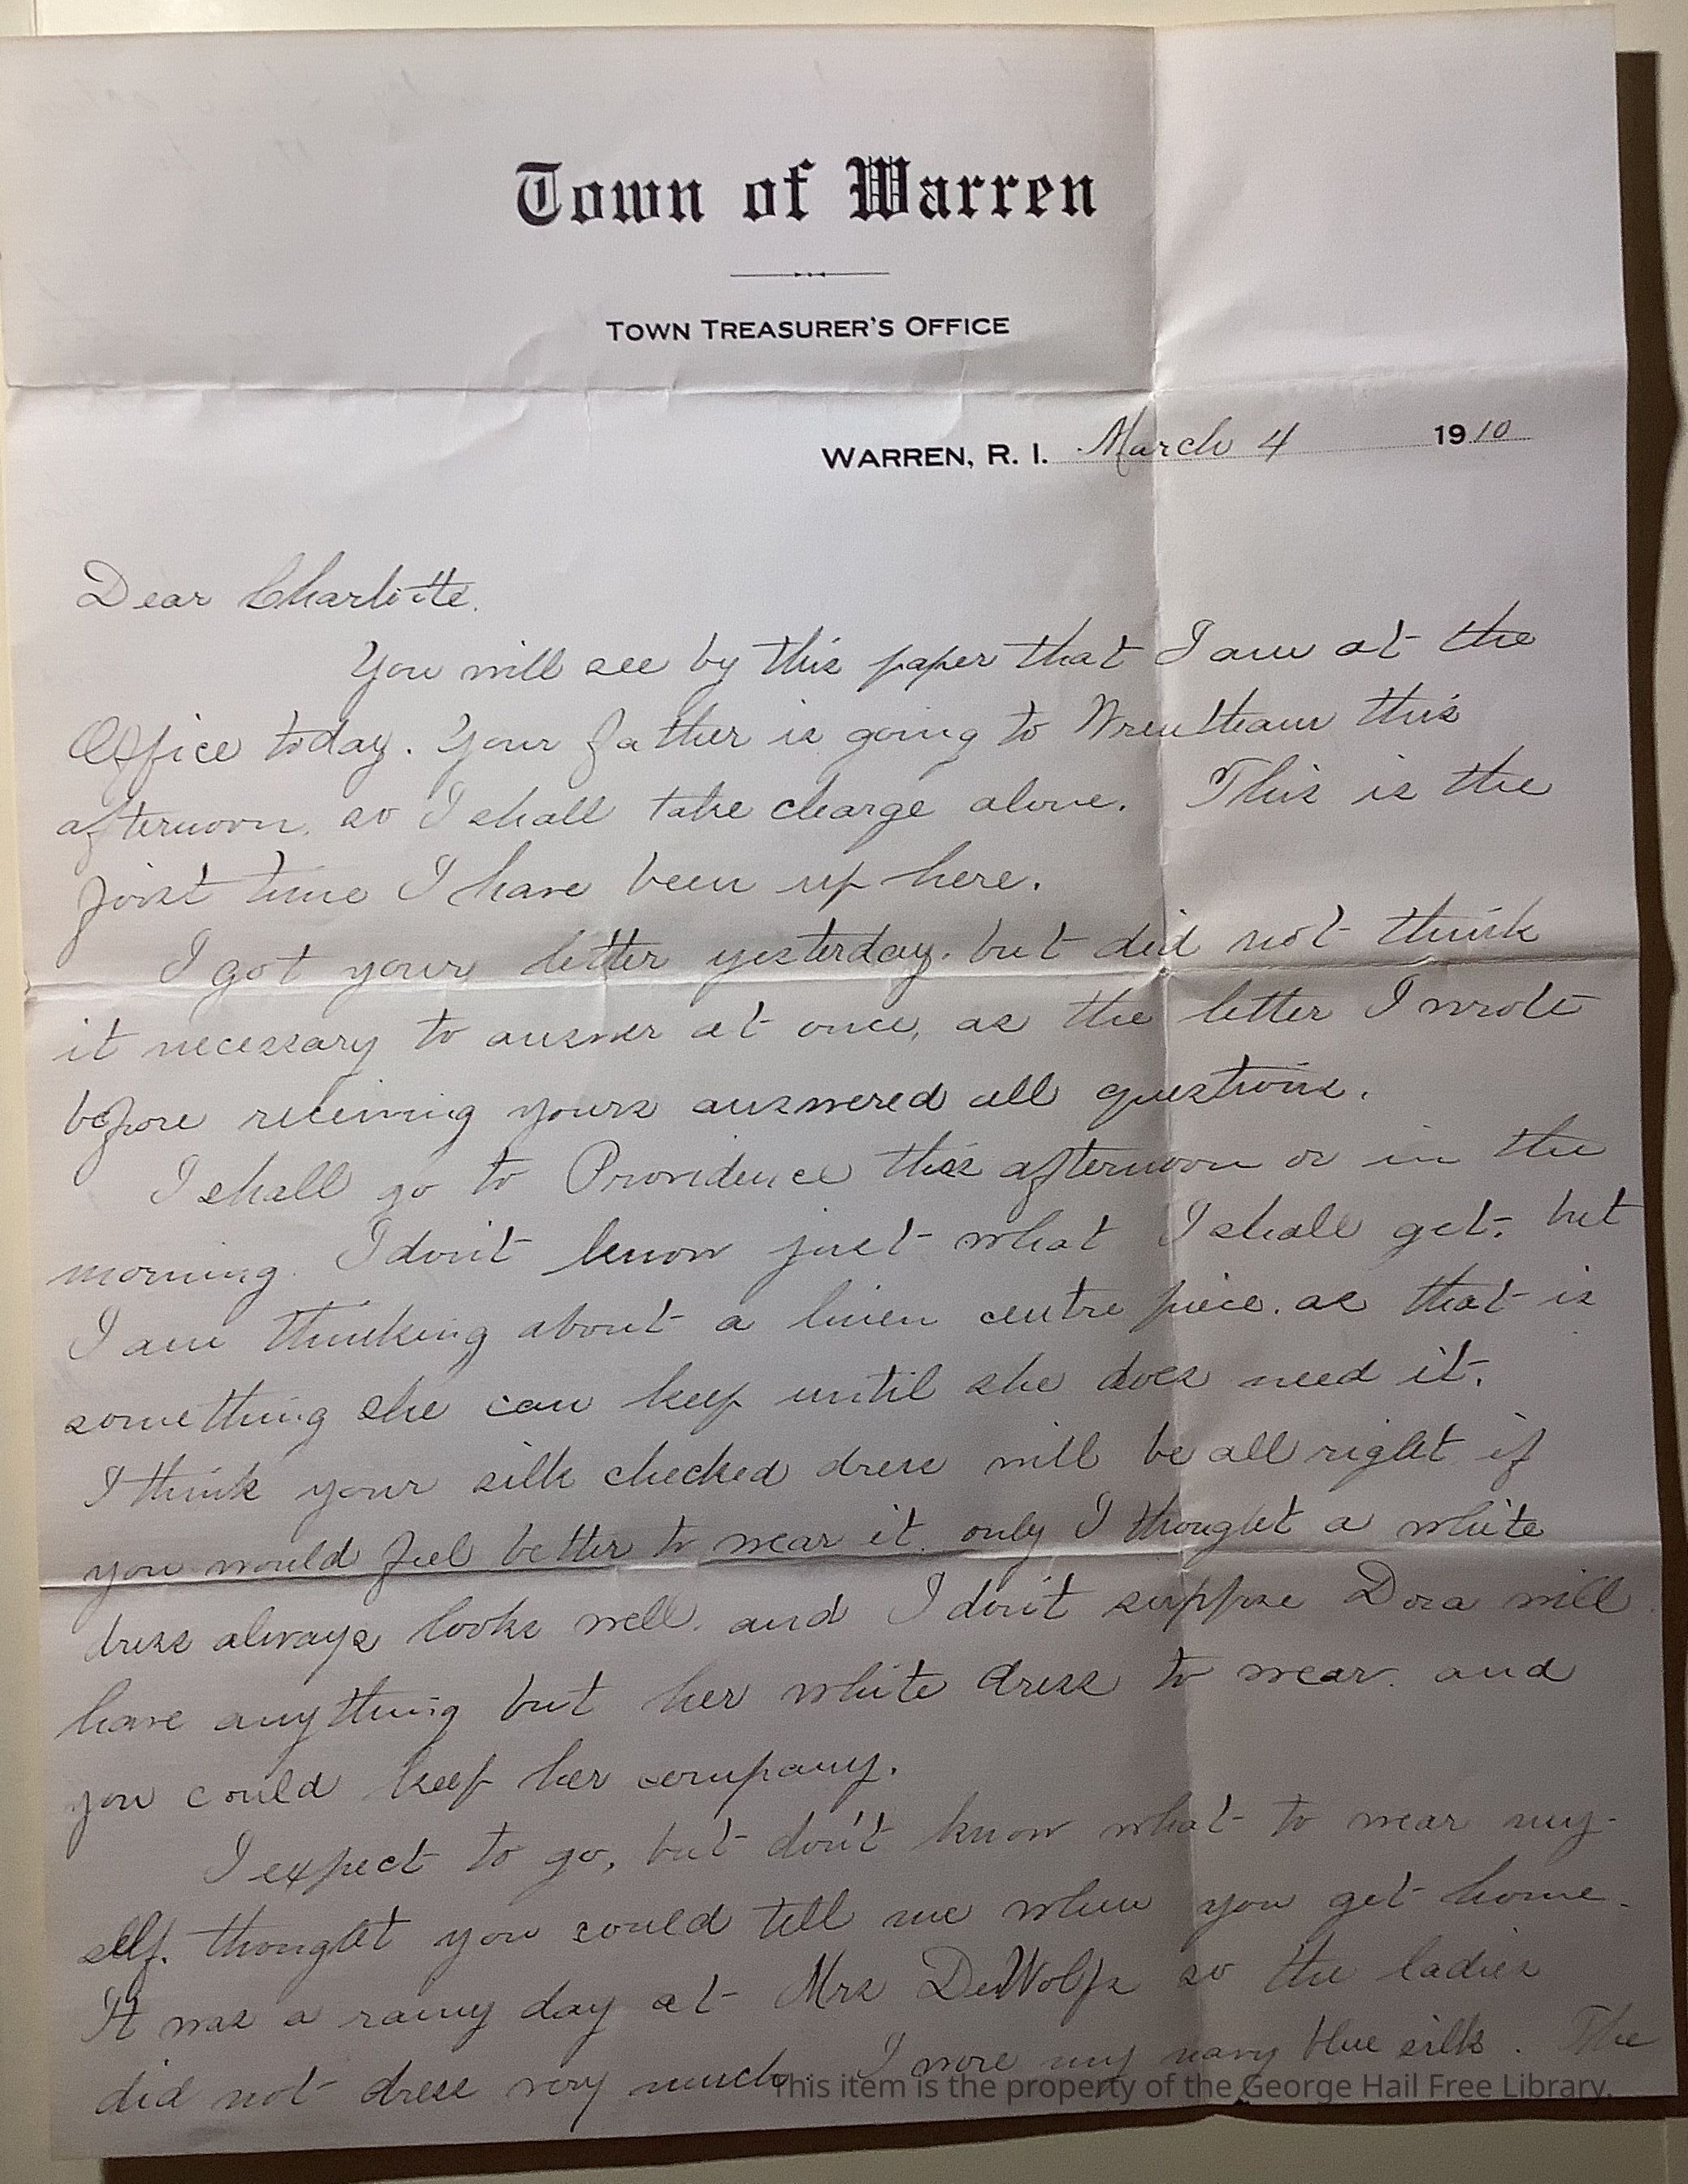 Town of Warren
TOWN TREASURER'S OFFICE
WARREN, R. I. March 4 1910
Dear Charlotte.
You will see by this paper that I am at the
Office today. Your father is going to Wrentham this
afternoon, so I shall take charge alone. This is the
first time I have been up here.
I got your letter yesterday, but did not think
it necessary to answer at once, as the letter I wrote
before receiving yours answered all questions.
I shall go to Providence this afternoon or in the
morning. I don't know just what I shall get, but
I am thinking about a linen centre piece, as that is
something she can keep until she does need it.
I think your silk checked dress will be all right if
you would feel better to wear it, only I thought a white
dress always looks well, and I don't suppose Dora will
have anything but her white dress to wear, and
you could keep her company.
I expect to go, but don't know what to wear my-
self. thought you could tell me when you get home.
It was a rainy day at Mrs DeWolfs so the ladies
did not dress very much. I wore my navy blue silk. The
This item is the property of the George Hail Free Library.